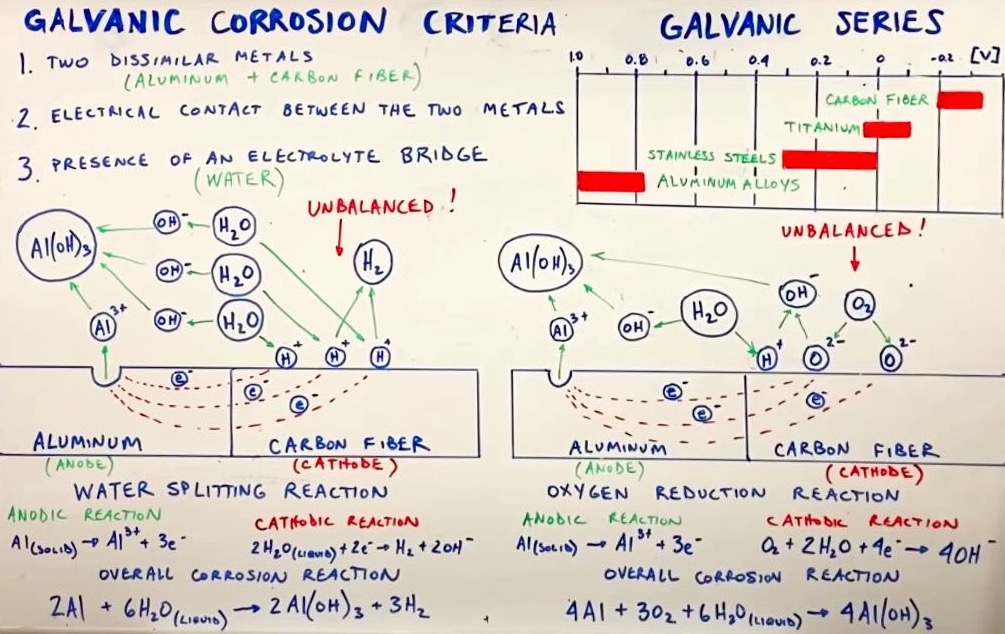 GALVANIC CORROSION CRITERIA
1. TWO DISSIMILAR METALS
(ALUMINUM + CARBON FIBER)
2. ELECTRICAL CONTACT BETWEEN THE TWO METALS
3. PRESENCE OF AN ELECTROLYTE BRIDGE
(WATER)
GALVANIC SERIES
1.0 0.8 0.6 0.4 0.2 0 -0.2 [V]
CARBON FIBER
TITANIUM
STAINLESS STEELS
ALUMINUM ALLOYS
UNBALANCED!
Al(OH)₃ OH⁻ H₂O H₂
OH⁻ H₂O
Al³⁺ OH⁻ H₂O
H⁺ H⁺ H⁺
e⁻ e⁻ e⁻
ALUMINUM CARBON FIBER
(ANODE) (CATHODE)
WATER SPLITTING REACTION
ANODIC REACTION CATHODIC REACTION
Al(SOLID) → Al³⁺ + 3e⁻ 2H₂O(LIQUID) + 2e⁻ → H₂ + 2OH⁻
OVERALL CORROSION REACTION
2Al + 6H₂O(LIQUID) → 2Al(OH)₃ + 3H₂
UNBALANCED!
Al(OH)₃ OH⁻ O₂
Al³⁺ OH⁻ H₂O
H⁺ O²⁻ O²⁻
e⁻ e⁻ e⁻
ALUMINUM CARBON FIBER
(ANODE) (CATHODE)
OXYGEN REDUCTION REACTION
ANODIC REACTION CATHODIC REACTION
Al(SOLID) → Al³⁺ + 3e⁻ O₂ + 2H₂O + 4e⁻ → 4OH⁻
OVERALL CORROSION REACTION
4Al + 3O₂ + 6H₂O(LIQUID) → 4Al(OH)₃